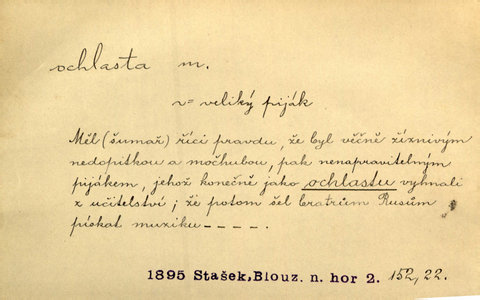 ochlasta m.
v= veliký piják
Měl (šumař) říci pravdu, že byl věčně žíznivým
nedopitkou a močhubou, pak nenapravitelným
pijákem, jehož konečně jako ochlastu vyhnali
z učitelství; že potom šel bratrům Rusům
pískat muziku – – – – .
1895 Stašek, Blouz. n. hor 2. 152, 22.